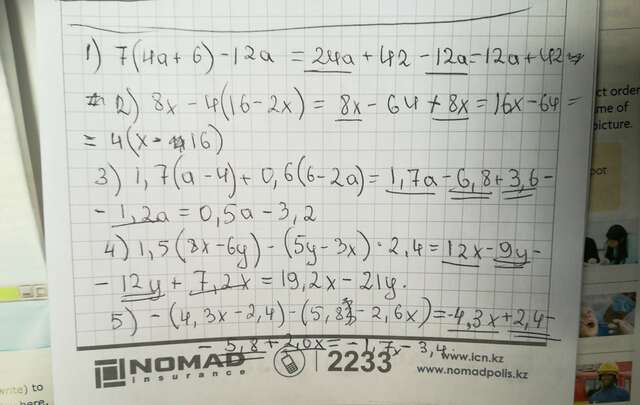 1) 7(4a+6)-12a = 24a+42-12a=12a+42
2) 8x-4(16-2x) = 8x-64+8x=16x-64=
= 4(x-16)
3) 1,7(a-4)+0,6(6-2a)=1,7a-6,8+3,6-
-1,2a=0,5a-3,2
4) 1,5(8x-6y)-(5y-3x)·2,4=12x-9y-
-12y+7,2x=19,2x-21y.
5) -(4,3x-2,4)-(5,8-2,6x)=-4,3x+2,4-
-5,8+2,6x=-1,7x-3,4.
NOMAD
insurance
2233
www.icn.kz
www.nomadpolis.kz
ct order
me of
picture.
pot
write) to
here,